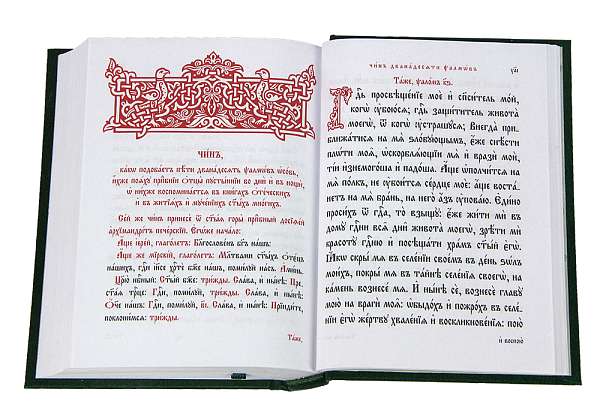 Чи́нъ,
ка́кѡ подоба́етъ пѣ́ти двана́десѧть ѱалмѡ́въ ѻ҆со́бь,
ꙗ҆̀же поѧ́хꙋ прпⷣбнїи ѻ҆тцы̀ пꙋсты́ннїи во днѝ и҆ въ нощѝ,
ѡ҆ ни́хже воспомина́етсѧ въ кни́гахъ ѻ҆те́ческихъ
и҆ въ житїѧ́хъ и҆ мꙋче́нїихъ ст҃ы́хъ мно́гихъ.
Се́й же чи́нъ принесѐ ѿ ст҃а́ѧ горы̀ прпⷣбный досїѳе́й
а҆рхїмандрі́тъ пече́рскїй. Е҆гѡ́же нача́ло:
А҆́ще і҆ере́й, глаго́летъ: Благослове́нъ бг҃ъ на́шъ:
А҆́ще же мїрскі́й, глаго́летъ: Мл҃твами ст҃ы́хъ ѻ҆те́цъ
на́шихъ, гдⷭ҇и і҆и҃се хрⷭ҇тѐ бж҃е на́шъ, поми́лꙋй на́съ. А҆ми́нь.
Цр҃ю̀ нбⷭ҇ный: Ст҃ы́й бж҃е: три́жды. Сла́ва, и҆ ны́нѣ: Пре-
ст҃а́ѧ трⷪ҇це: Гдⷭ҇и, поми́лꙋй, три́жды. Сла́ва, и҆ ны́нѣ:
Ѻ҆́ч҃е на́шъ: Гдⷭ҇и, поми́лꙋй, в҃і. Сла́ва, и҆ ны́нѣ: Прїиди́те,
поклони́мсѧ: три́жды.
Та́же,
чи́нъ двана́десѧти ѱалмѡ́въ
Та́же, ѱало́мъ к҃ѕ.
Гдⷭ҇ь просвѣще́нїе моѐ и҆ сп҃си́тель мо́й,
когѡ̀ ᲂу҆бою́сѧ; гдⷭ҇ь защи́титель живота̀
моегѡ̀, ѿ когѡ̀ ᲂу҆страшꙋ́сѧ; Внегда̀ при-
ближа́тисѧ на мѧ̀ ѕло́бꙋющымъ, є҆́же снѣ́сти
плѡ́ти моѧ̑, ѡ҆скорблѧ́ющїи мѧ̀ и҆ вразѝ моѝ,
ті́и и҆знемого́ша и҆ падо́ша. А҆́ще ѡ҆полчи́тсѧ на
мѧ̀ по́лкъ, не ᲂу҆бои́тсѧ се́рдце моѐ: а҆́ще воста́-
нетъ на мѧ̀ бра́нь, на него̀ а҆́зъ ᲂу҆пова́ю. Є҆ди́но
проси́хъ ѿ гдⷭ҇а, то̀ взыщꙋ̀: є҆́же жи́ти мѝ въ
домꙋ̀ гдⷭ҇ни всѧ̑ дни̑ живота̀ моегѡ̀, зрѣ́ти мѝ
красотꙋ̀ гдⷭ҇ню и҆ посѣща́ти хра́мъ ст҃ы́й є҆гѡ̀.
Ꙗ҆́кѡ скры́ мѧ въ селе́нїи свое́мъ въ де́нь ѕѡ́лъ
мои́хъ, покры́ мѧ въ та́йнѣ селе́нїѧ своегѡ̀, на
ка́мень вознесе́ мѧ. И҆ ны́нѣ сѐ, вознесѐ главꙋ̀
мою̀ на врагѝ моѧ̑: ѡ҆быдо́хъ и҆ пожро́хъ въ селе́-
нїи є҆гѡ̀ же́ртвꙋ хвале́нїѧ и҆ воскликнове́нїѧ: пою̀
и҆ воспою̀